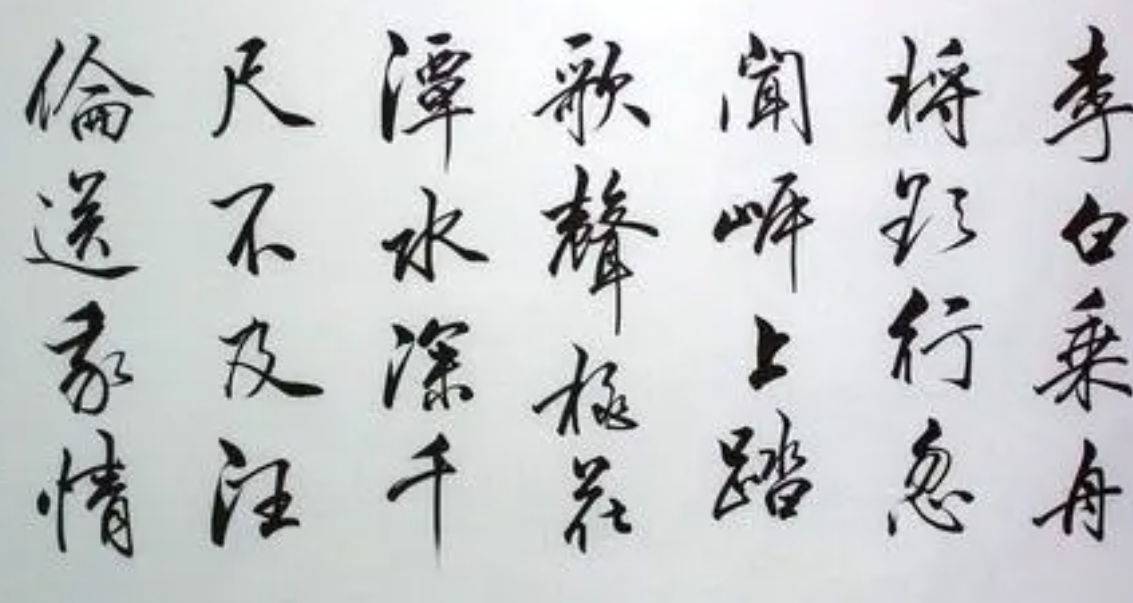 李白乘舟
將欲行忽
聞岸上踏
歌聲桃花
潭水深千
尺不及汪
倫送我情